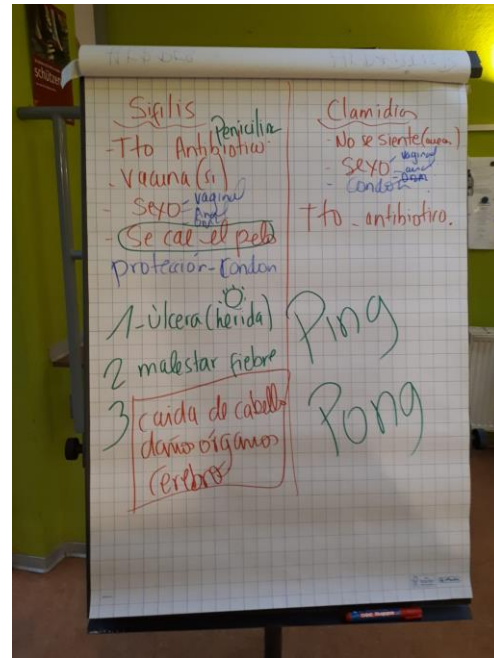 schützen
Sifilis
Penicilina
- Tto Antibiotico
. Vacuna (si)
- Sexo - vaginal
Anal
- Se cae el pelo
protección - Condon
1 - Úlcera (herida)
2 malestar fiebre
3 caida de cabello
daños organos
Cerebro
Clamidia
- No se siente
- Sexo - vaginal
anal
- Condon
Tto - antibiotico.
Ping
Pong